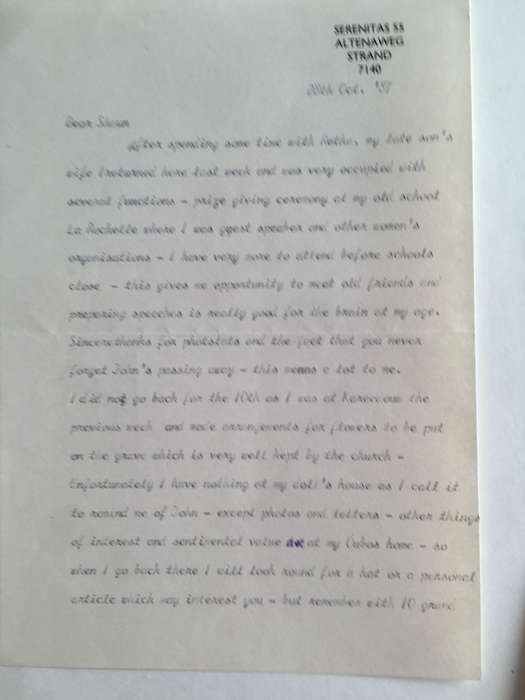 SERENITAS 55
ALTENAWEG
STRAND
7140
28th Oct. '87
Dear
After spending some time with my late son's
wife I returned here last week and was very occupied with
several functions - prize giving ceremony at my old school
La Rochelle where I was guest speaker and other women's
organisations - I have very more to attend before schools
close - this gives me opportunity to meet old friends and
preparing speeches is really good for the brain at my age.
Sincerethanks for photstats and the fact that you never
forget John's passing away - this means a lot to me.
I did not go back for the 10th as I was at the
previous week and made arrangements for flowers to be put
on the grave which is very well kept by the church -
Unfortunately I have nothing at my doll's house as I call it
to remind me of John - except photos and letters - other things
of interest and sentimental value at my home - so
when I go back there I will look round for a hat or a personal
article which may interest you - but remember with 10 grand